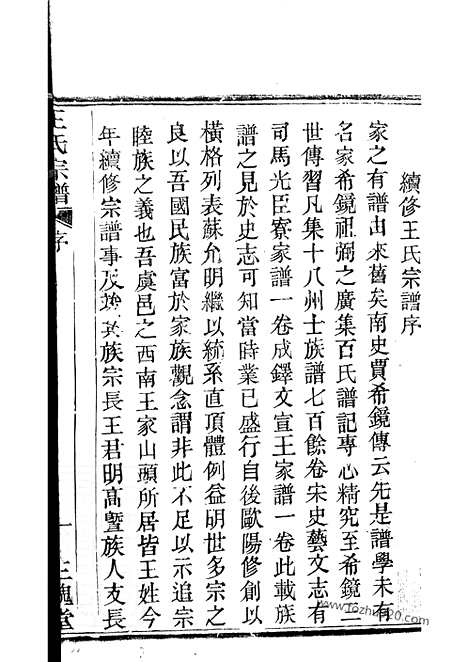 續修王氏宗譜序
家之有譜由來舊矣南史賈希鏡傳云先是譜學未有
名家希鏡祖弼之廣集百氏譜記專心精究至希鏡三
世傳習凡集十八州士族譜七百餘卷宋史藝文志有
司馬光臣寮家譜一卷成鐸文宣王家譜一卷此載族
譜之見於史志可知當時業已盛行自後歐陽修創以
橫格列表蘇允明繼以統系直頂體例益明世多宗之
良以吾國民族富於家族觀念謂非此不足以示追宗
睦族之義也吾虞邑之西南王家山頭所居皆王姓今
年續修宗譜事及竣其族宗長王君明高暨族人支長
王氏宗譜 序 一 三槐堂
www.1026zhuhu20.com